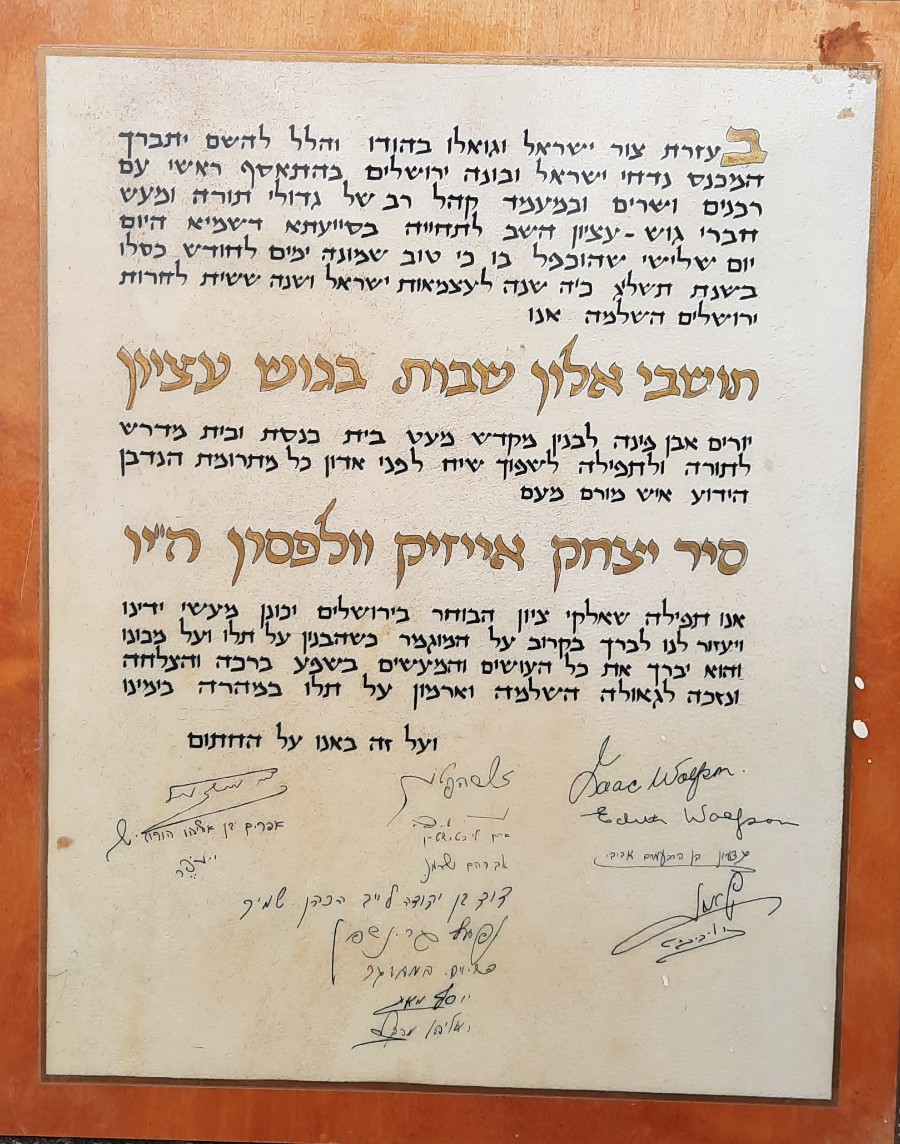 בעזרת צור ישראל וגואלו בהודו והלל להשם יתברך
המכנס נדחי ישראל ובונה ירושלים בהתאסף ראשי עם
רבנים ושרים ובמעמד קהל רב של גדולי תורה ומעש
חברי גוש-עציון השב לתחייה בסייעתא דשמיא היום
יום שלישי שהוכפל בו כי טוב שמונה ימים לחודש כסלו
בשנת תשל״ג כ״ה שנה לעצמאות ישראל ושנה ששית לחרות
ירושלים השלמה אנו
תושבי אלון שבות בגוש עציון
יורים אבן פינה לבנין מקדש מעט בית כנסת ובית מדרש
לתורה ולתפילה לשפוך שיח לפני אדון כל מתרומת הנדבן
הידוע איש מורם מעם
סיר יצחק אייזיק וולפסון הי״ו
אנו תפילה שאלקי ציון הבוחר בירושלים יכונן מעשי ידינו
ויעזור לנו לברך בקרוב על המוגמר כשהבנין על תלו ועל מכונו
והוא יברך את כל העושים והמעשים בשפע ברכה והצלחה
ונזכה לגאולה השלמה וארמון על תלו במהרה בימינו
ועל זה באנו על החתום
Isaac Wolfson.
Edith Wolfson
אפרים בן אליהו
אברהם
דוד בן יהודה לייב הכהן שמיר
יוסף